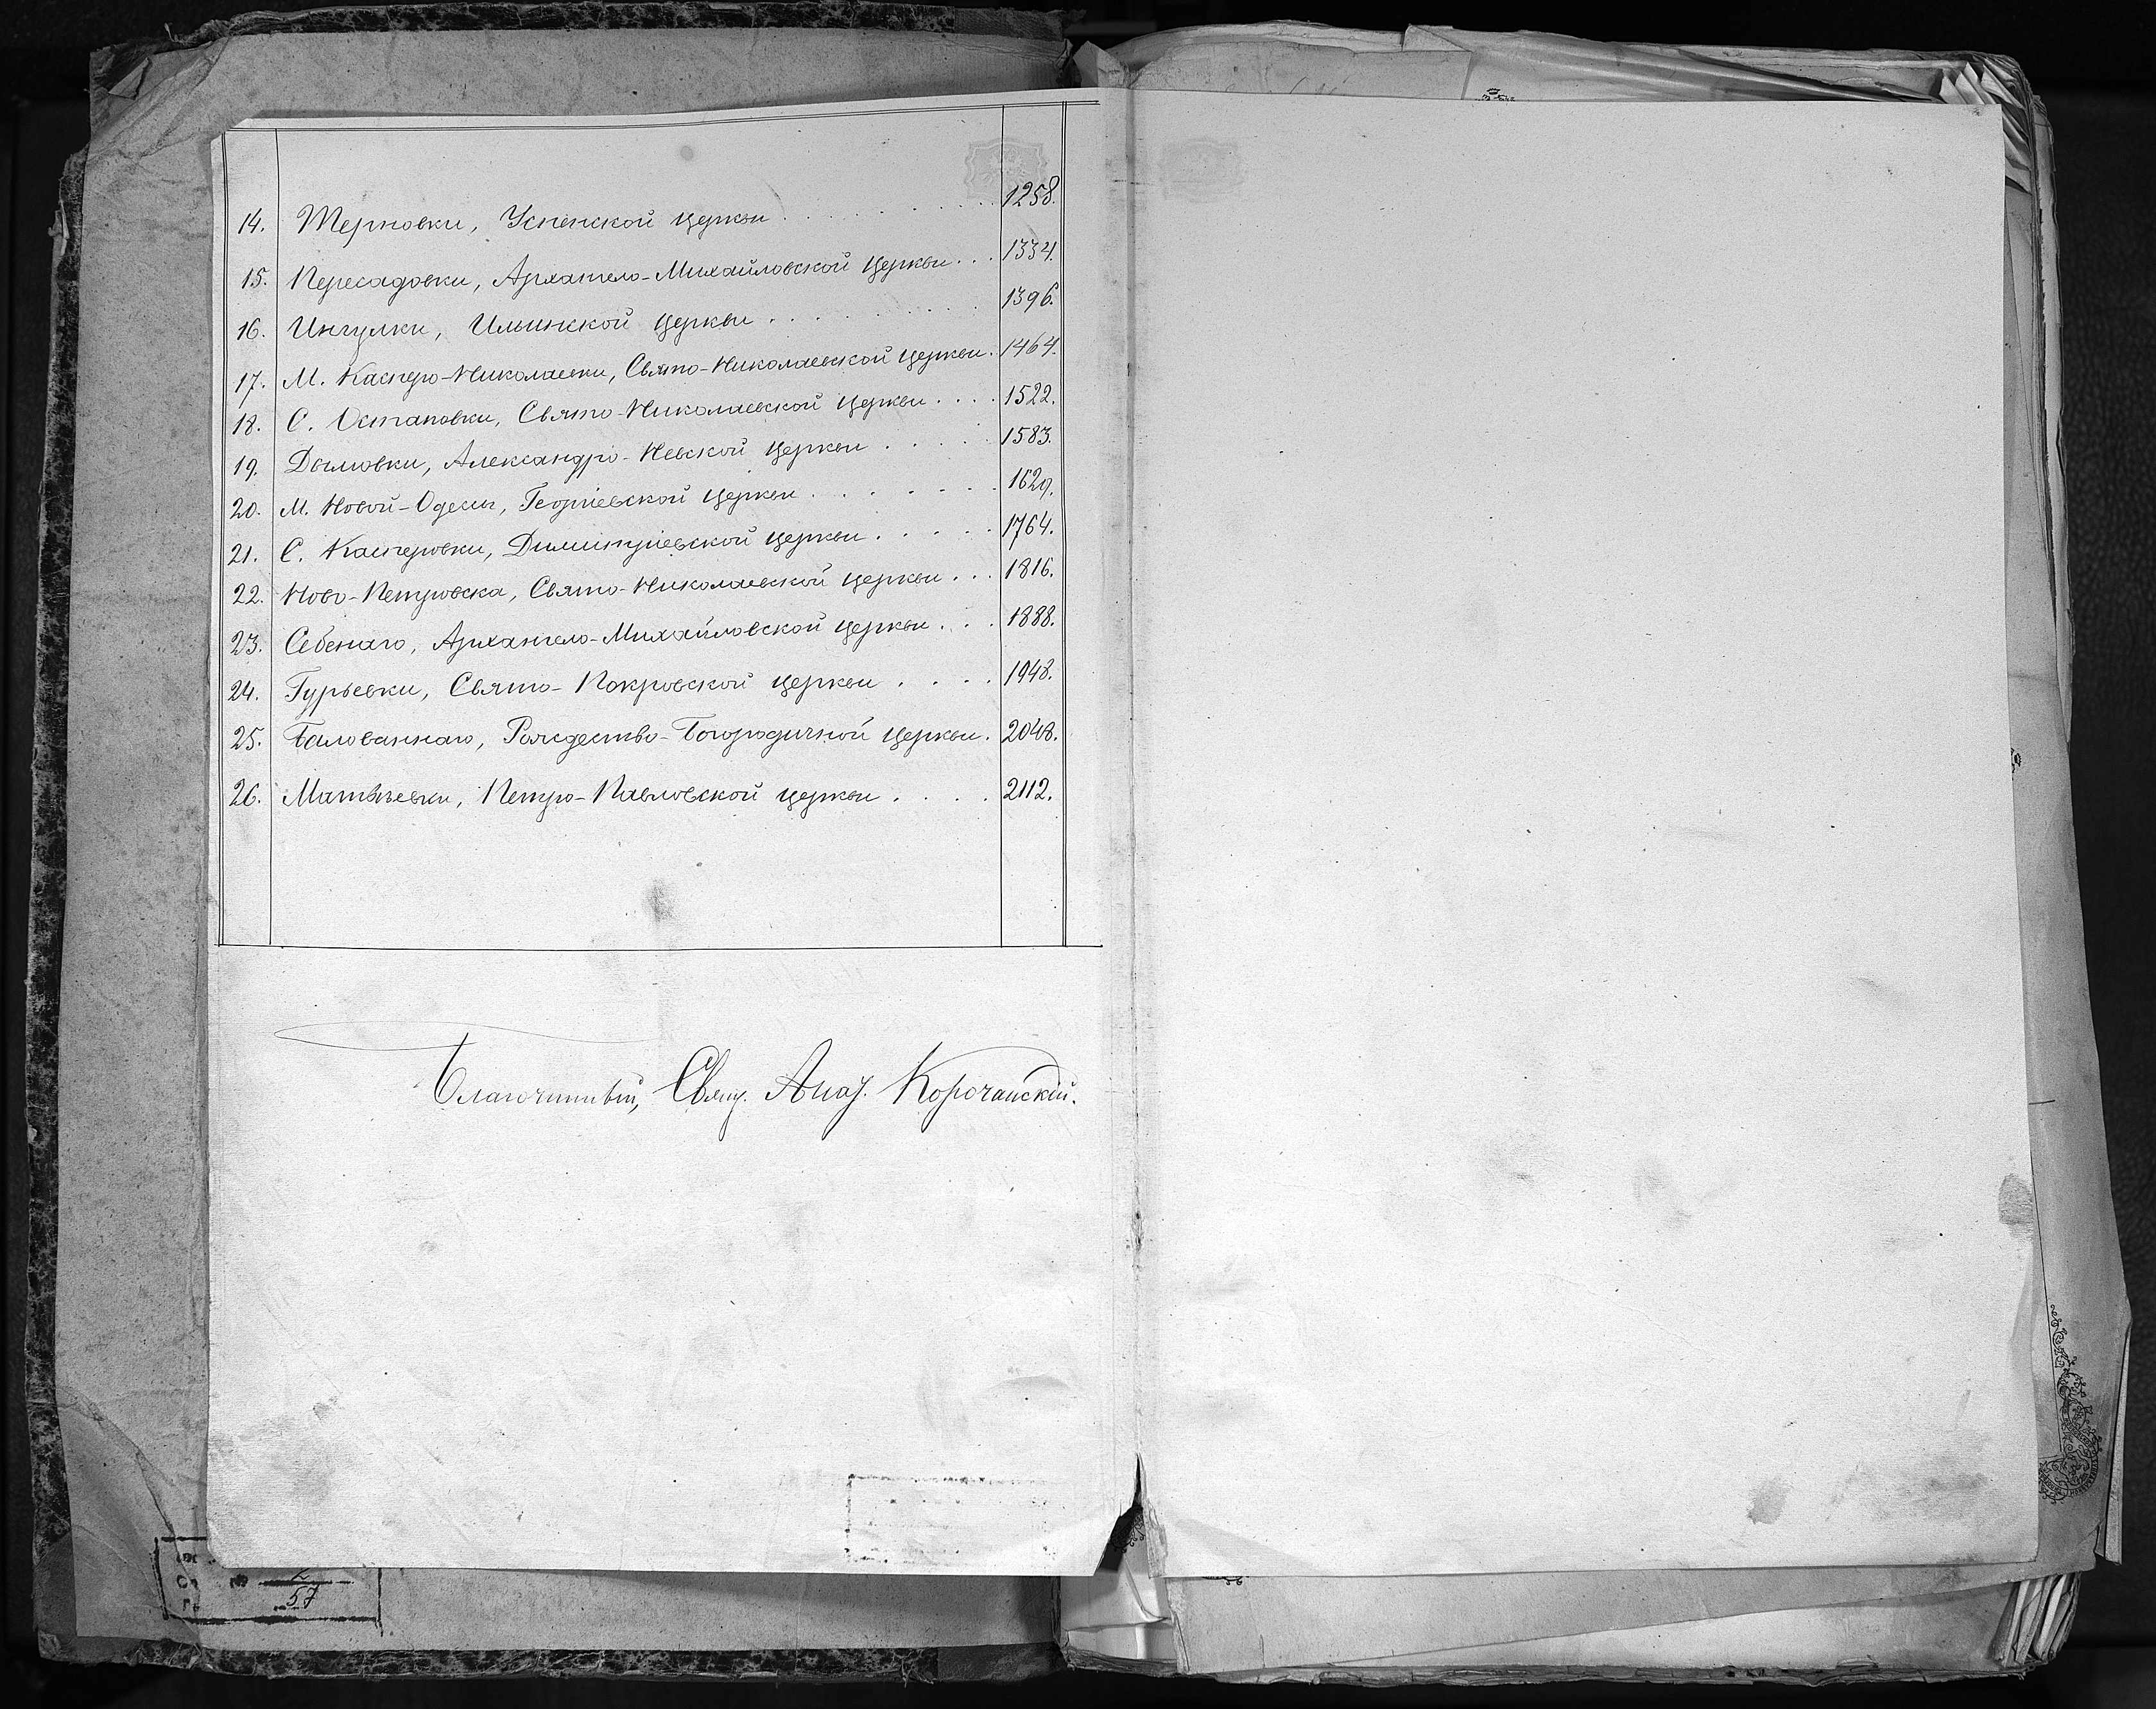 14. Терновки, Успенской церкви . . . . . . . . . . 1258.
15. Пересадовки, Архангело-Михайловской церкви . . . 1334.
16. Ингулки, Ильинской церкви . . . . . . . . . 1396.
17. М. Касперо-Николаевки, Свято-Николаевской церкви. 1464.
18. С. Остаповки, Свято-Николаевской церкви . . . . 1522.
19. Дымовки, Александро-Невской церкви . . . . . 1583.
20. М. Новой-Одессы, Георгіевской церкви . . . . . . . 1629.
21. С. Касперовки, Димитріевской церкви . . . . . 1764.
22. Ново-Петровска, Свято-Николаевской церкви . . . 1816.
23. Себенаго, Архангело-Михайловской церкви . . . 1888.
24. Гурьевки, Свято-Покровской церкви . . . . 1948.
25. Балованнаго, Рождество-Богородичной церкви. 2048.
26. Матвѣевки, Петро-Павловской церкви . . . . 2112.
Благочинный, Свящ. Корочанскій.
57